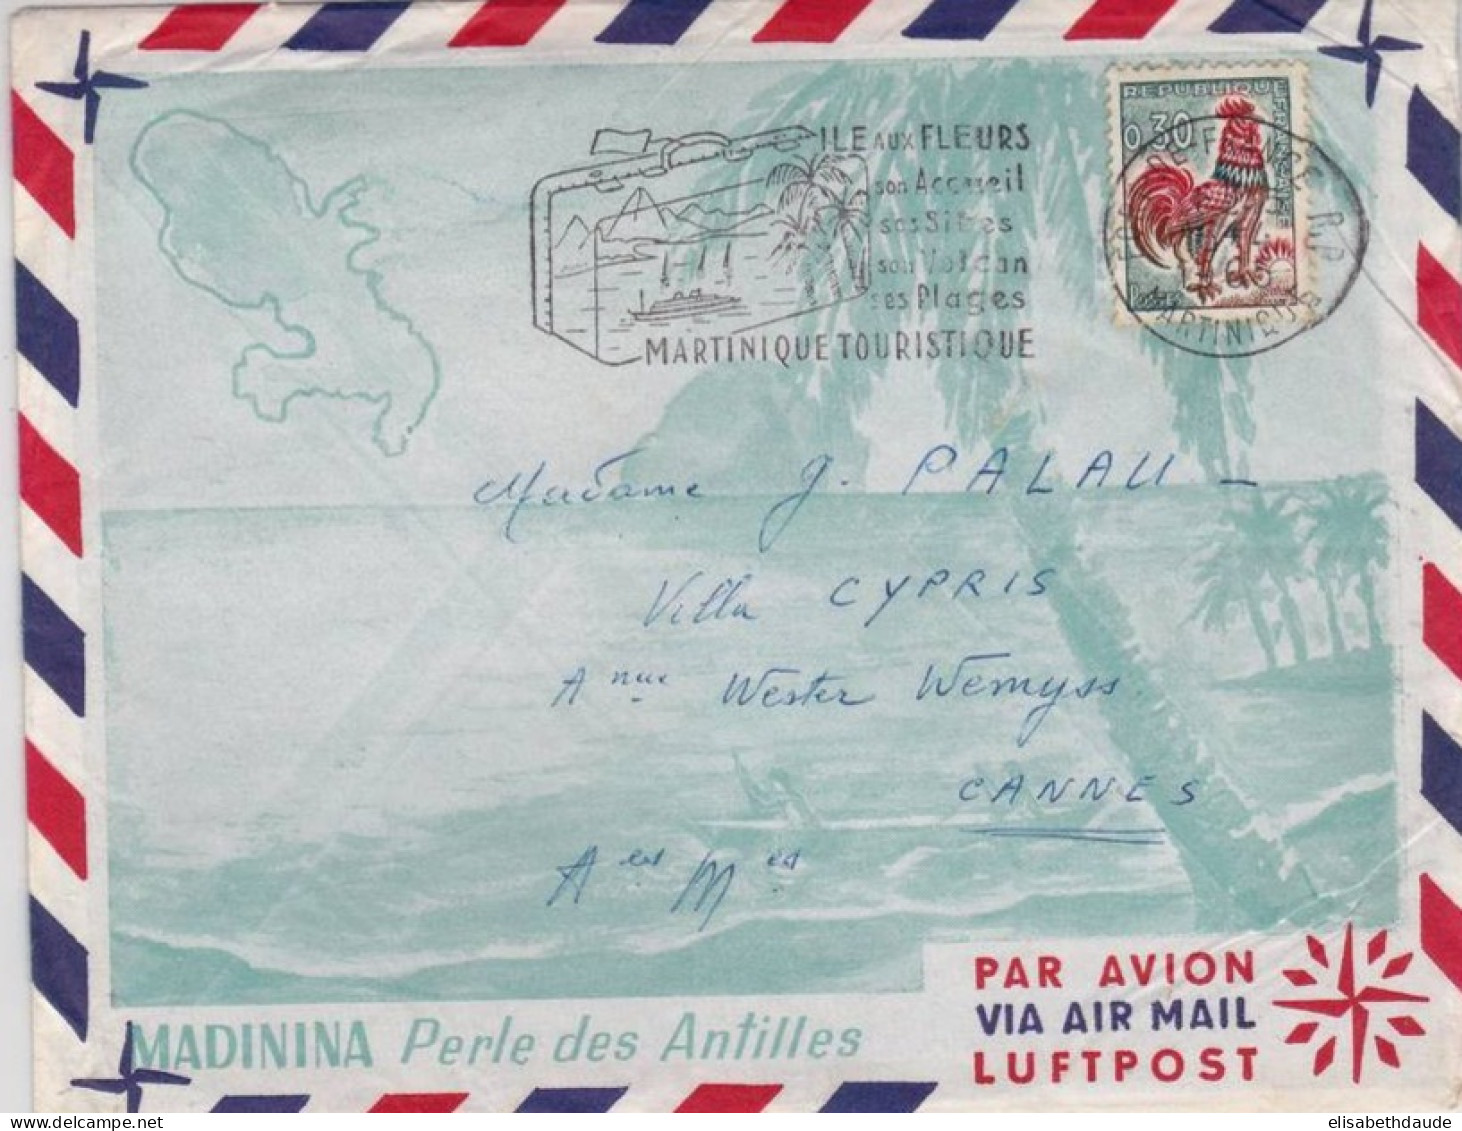 REPUBLIQUE FRANCAISE
0,30
Postes
FORT-DE-FRANCE R.P.
MARTINIQUE
ILE AUX FLEURS
son Accueil
ses Sites
son Volcan
ses Plages
MARTINIQUE TOURISTIQUE
Madame J. PALAU -
Villa CYPRIS
Anue Wester Wemyss
CANNES
Aes Mes
PAR AVION
VIA AIR MAIL
LUFTPOST
MADININA Perle des Antilles
elisabethdaude